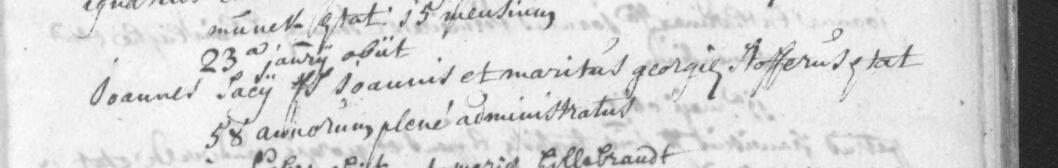 munck ętat: 15 mensium
23a januarij obiit
Joannes Sacij fs Joannis et maritus georgię Stofferus ętat
58 annorum, plené administratus
maria Hillebrandt